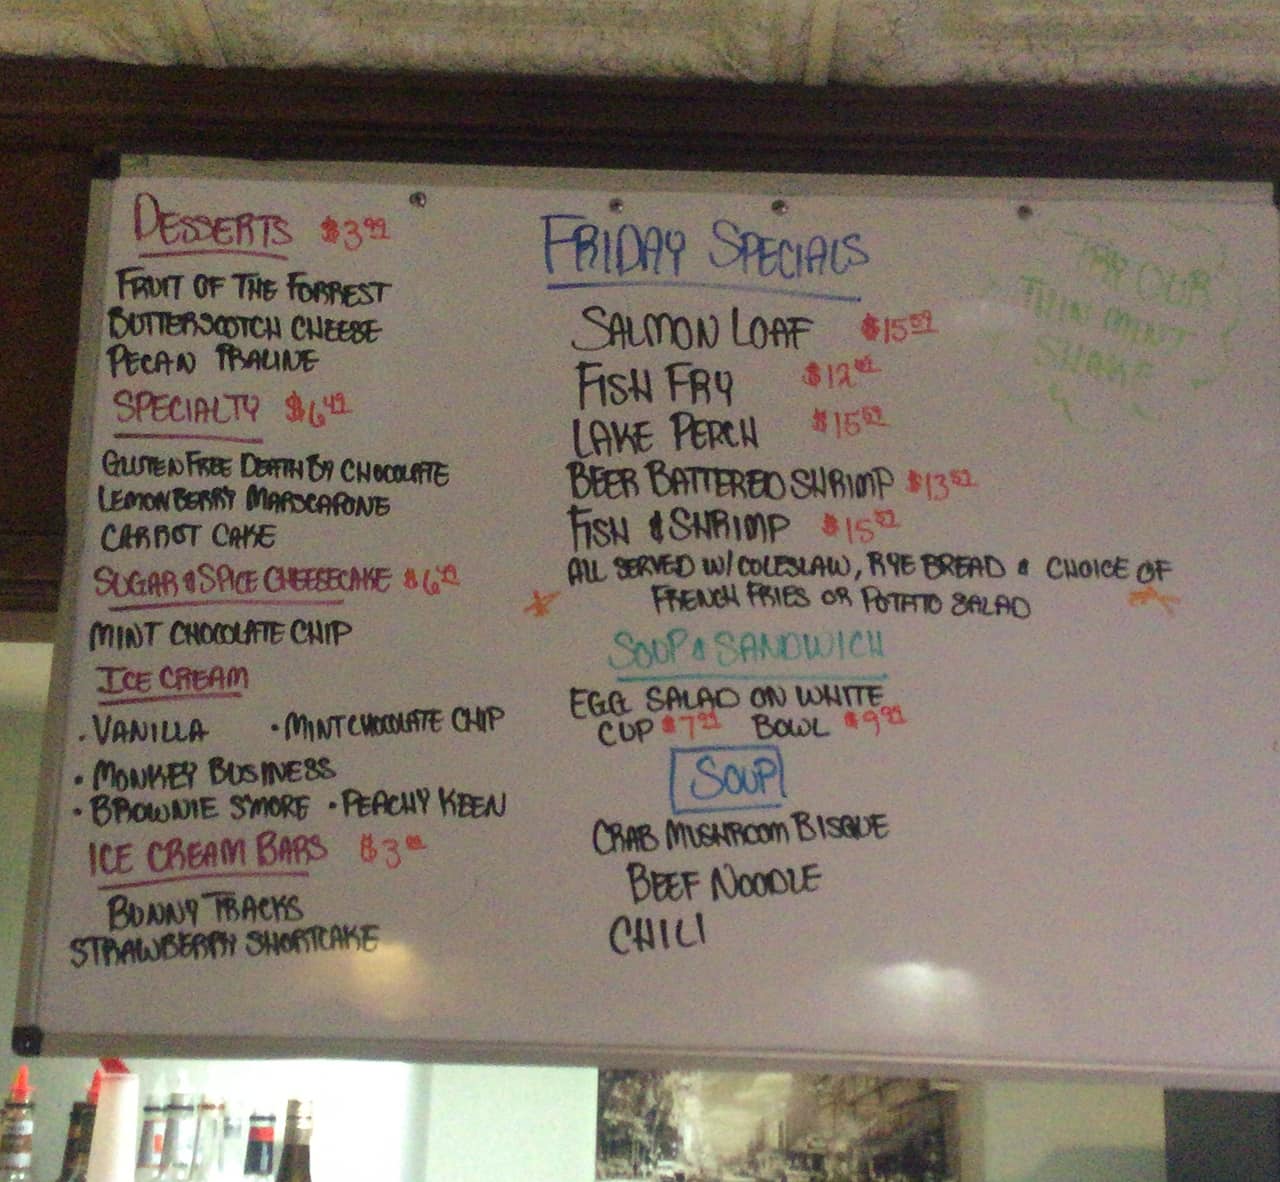 DESSERTS $3.99
FRUIT OF THE FORREST
BUTTERSCOTCH CHEESE
PECAN PRALINE
SPECIALTY $6.49
GLUTEN FREE DEATH BY CHOCOLATE
LEMON BERRY MARSCAPONE
CARROT CAKE
SUGAR & SPICE CHEESECAKE $6.49
MINT CHOCOLATE CHIP
ICE CREAM
• VANILLA • MINT CHOCOLATE CHIP
• MONKEY BUSINESS
• BROWNIE S'MORE • PEACHY KEEN
ICE CREAM BARS
BUNNY TRACKS
STRAWBERRY SHORTCAKE
FRIDAY SPECIALS
SALMON LOAF
FISH FRY
LAKE PERCH
BEER BATTERED SHRIMP
FISH & SHRIMP
ALL SERVED W/ COLESLAW, RYE BREAD & CHOICE OF
FRENCH FRIES OR POTATO SALAD
SOUP & SANDWICH
EGG SALAD ON WHITE
CUP BOWL
SOUP
CRAB MUSHROOM BISQUE
BEEF NOODLE
CHILI
TRY OUR
THIN MINT
SHAKE